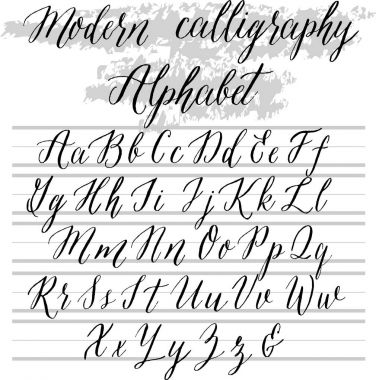 Modern calligraphy
Alphabet
Aa Bb Cc Dd Ee Ff
Gg Hh Ii Jj Kk Ll
Mm Nn Oo Pp Qq
Rr Ss Tt Uu Vv Ww
Xx Yy Zz &